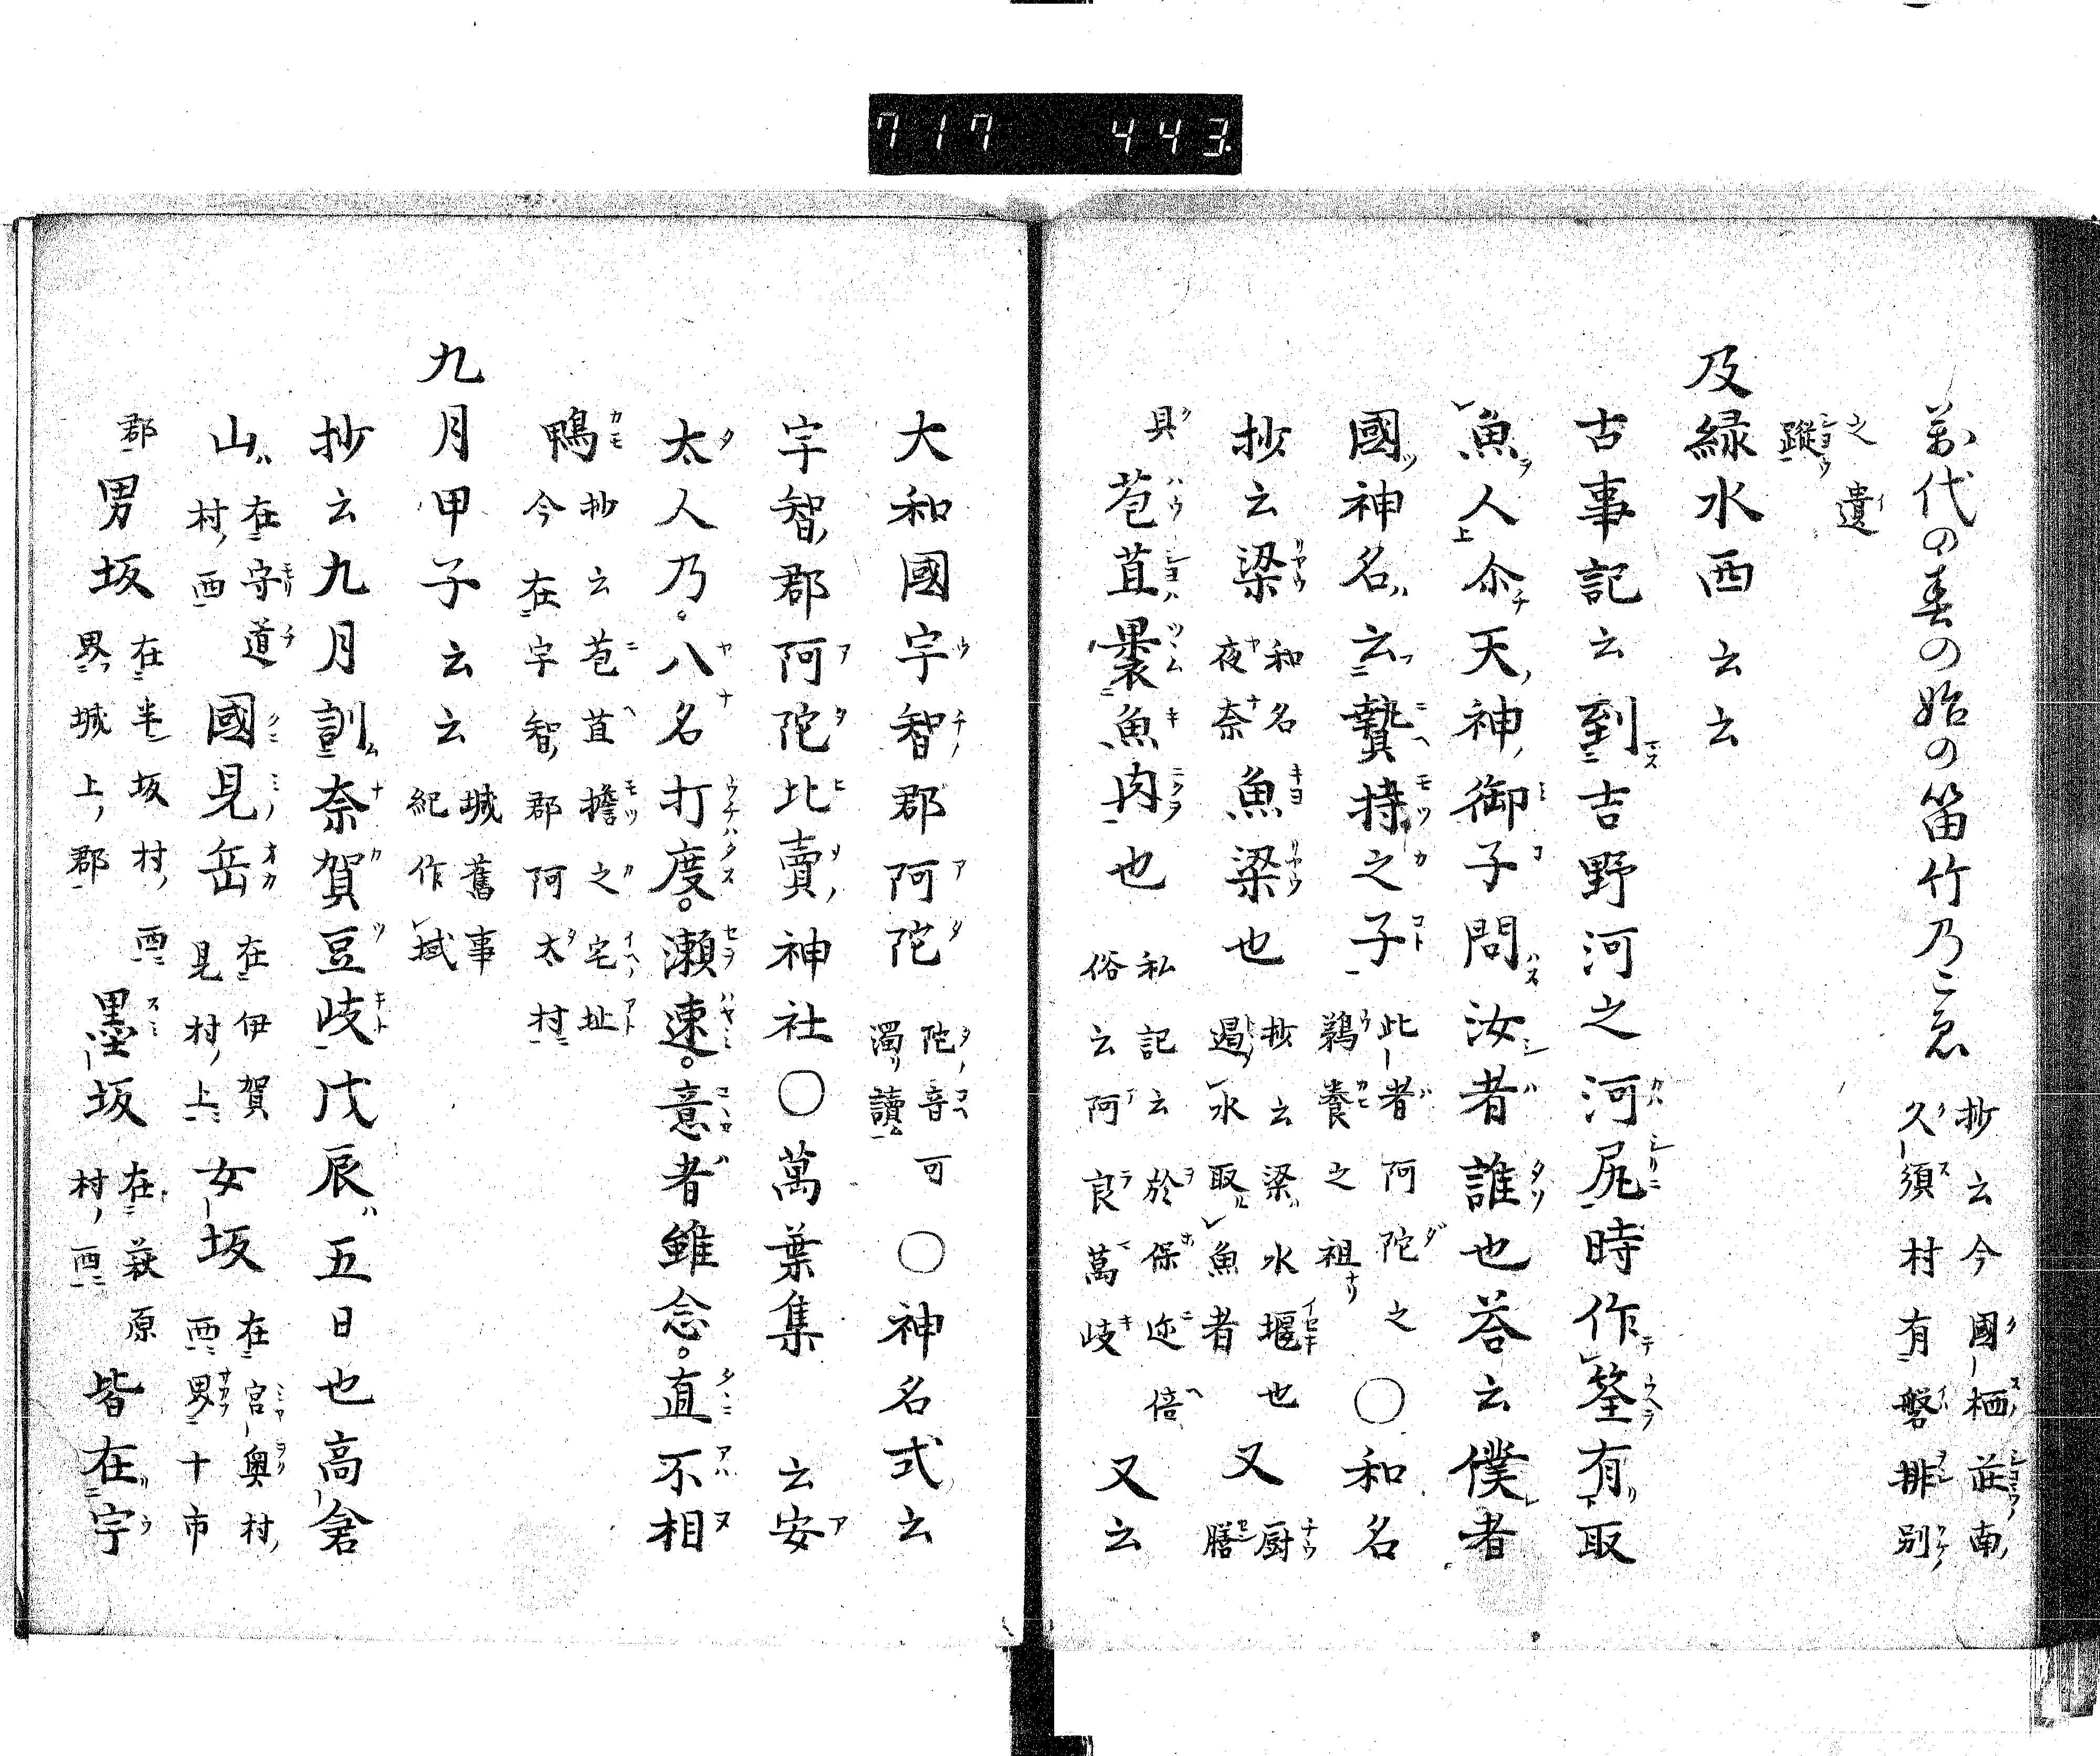 717 443
萬代の春の始の笛竹乃こゑ 抄云今國栖莊南久須村有磐排別
之遺蹤
及緑水西云云
古事記云到吉野河之河尻時作筌有取
魚人尒天神御子問汝者誰也荅云僕者
國神名云贄持之子 此者阿陀之鵜養之祖 〇和名
抄云梁 和名夜奈 魚梁也 抄云梁水堰也遏水取魚者 又厨膳
具苞苴褁魚肉也 私記云於保迩倍俗云阿良萬岐 又云
大和國宇智郡阿陀 陀音可濁讀 〇神名式云
宇智郡阿陀比賣神社〇萬葉集云安
太人乃八名打度瀬速意者雖念直不相
鴨 抄云苞苴擔之宅址今在宇智郡阿太村
九月甲子云云 城舊事紀作域
抄云九月訓奈賀豆岐戊辰五日也高倉
山 在守道村西 國見岳 在伊賀見村上 女坂 在宮奥村西界十市
郡 男坂 在半坂村西界城上郡 墨坂 在萩原村西 皆在宇